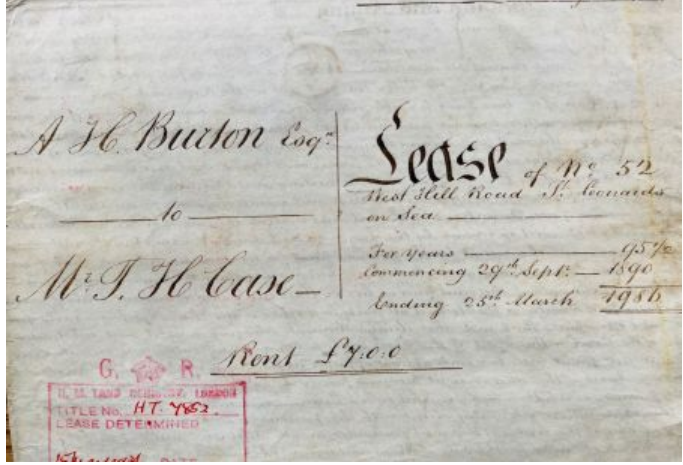 A. H. Burton Esqr.
to
Mr. T. H. Case
Lease of No. 52
West Hill Road St. Leonards
on Sea
For years 95½
Commencing 29th Septr. 1890
Ending 25th March 1986
Rent £7:0:0
G. R.
H. M. LAND REGISTRY, LONDON
TITLE No. HT. 7852
LEASE DETERMINED
DATE